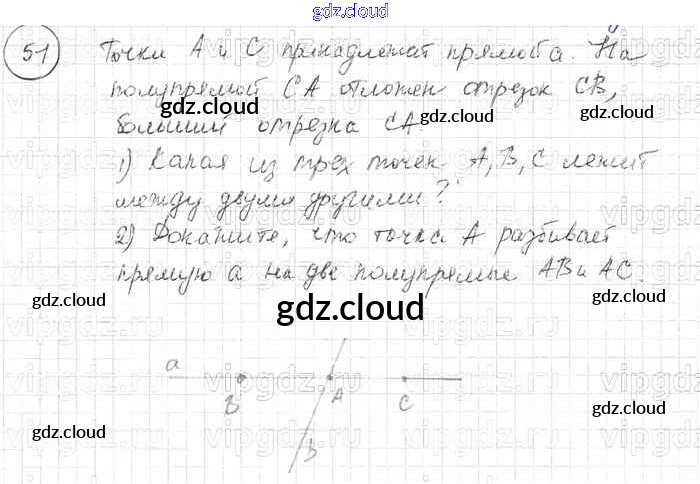 gdz.cloud
51 Точки А и С принадлежат прямой а. На
полупрямой СА отложен отрезок СВ,
gdz.cloud gdz.cloud
больший отрезка СА.
1) Какая из трех точек А, В, С лежит
между двумя другими?
2) Докажите, что точка А разбивает
прямую а на две полупрямые АВ и АС.
gdz.cloud gdz.cloud
gdz.cloud
a
B A C
gdz.cloud gdz.cloud
b
vipgdz.ru